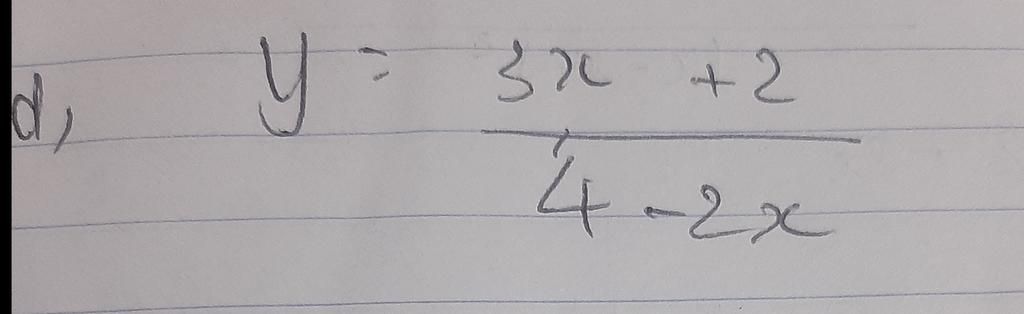 d, y = 3x + 2
4 - 2x